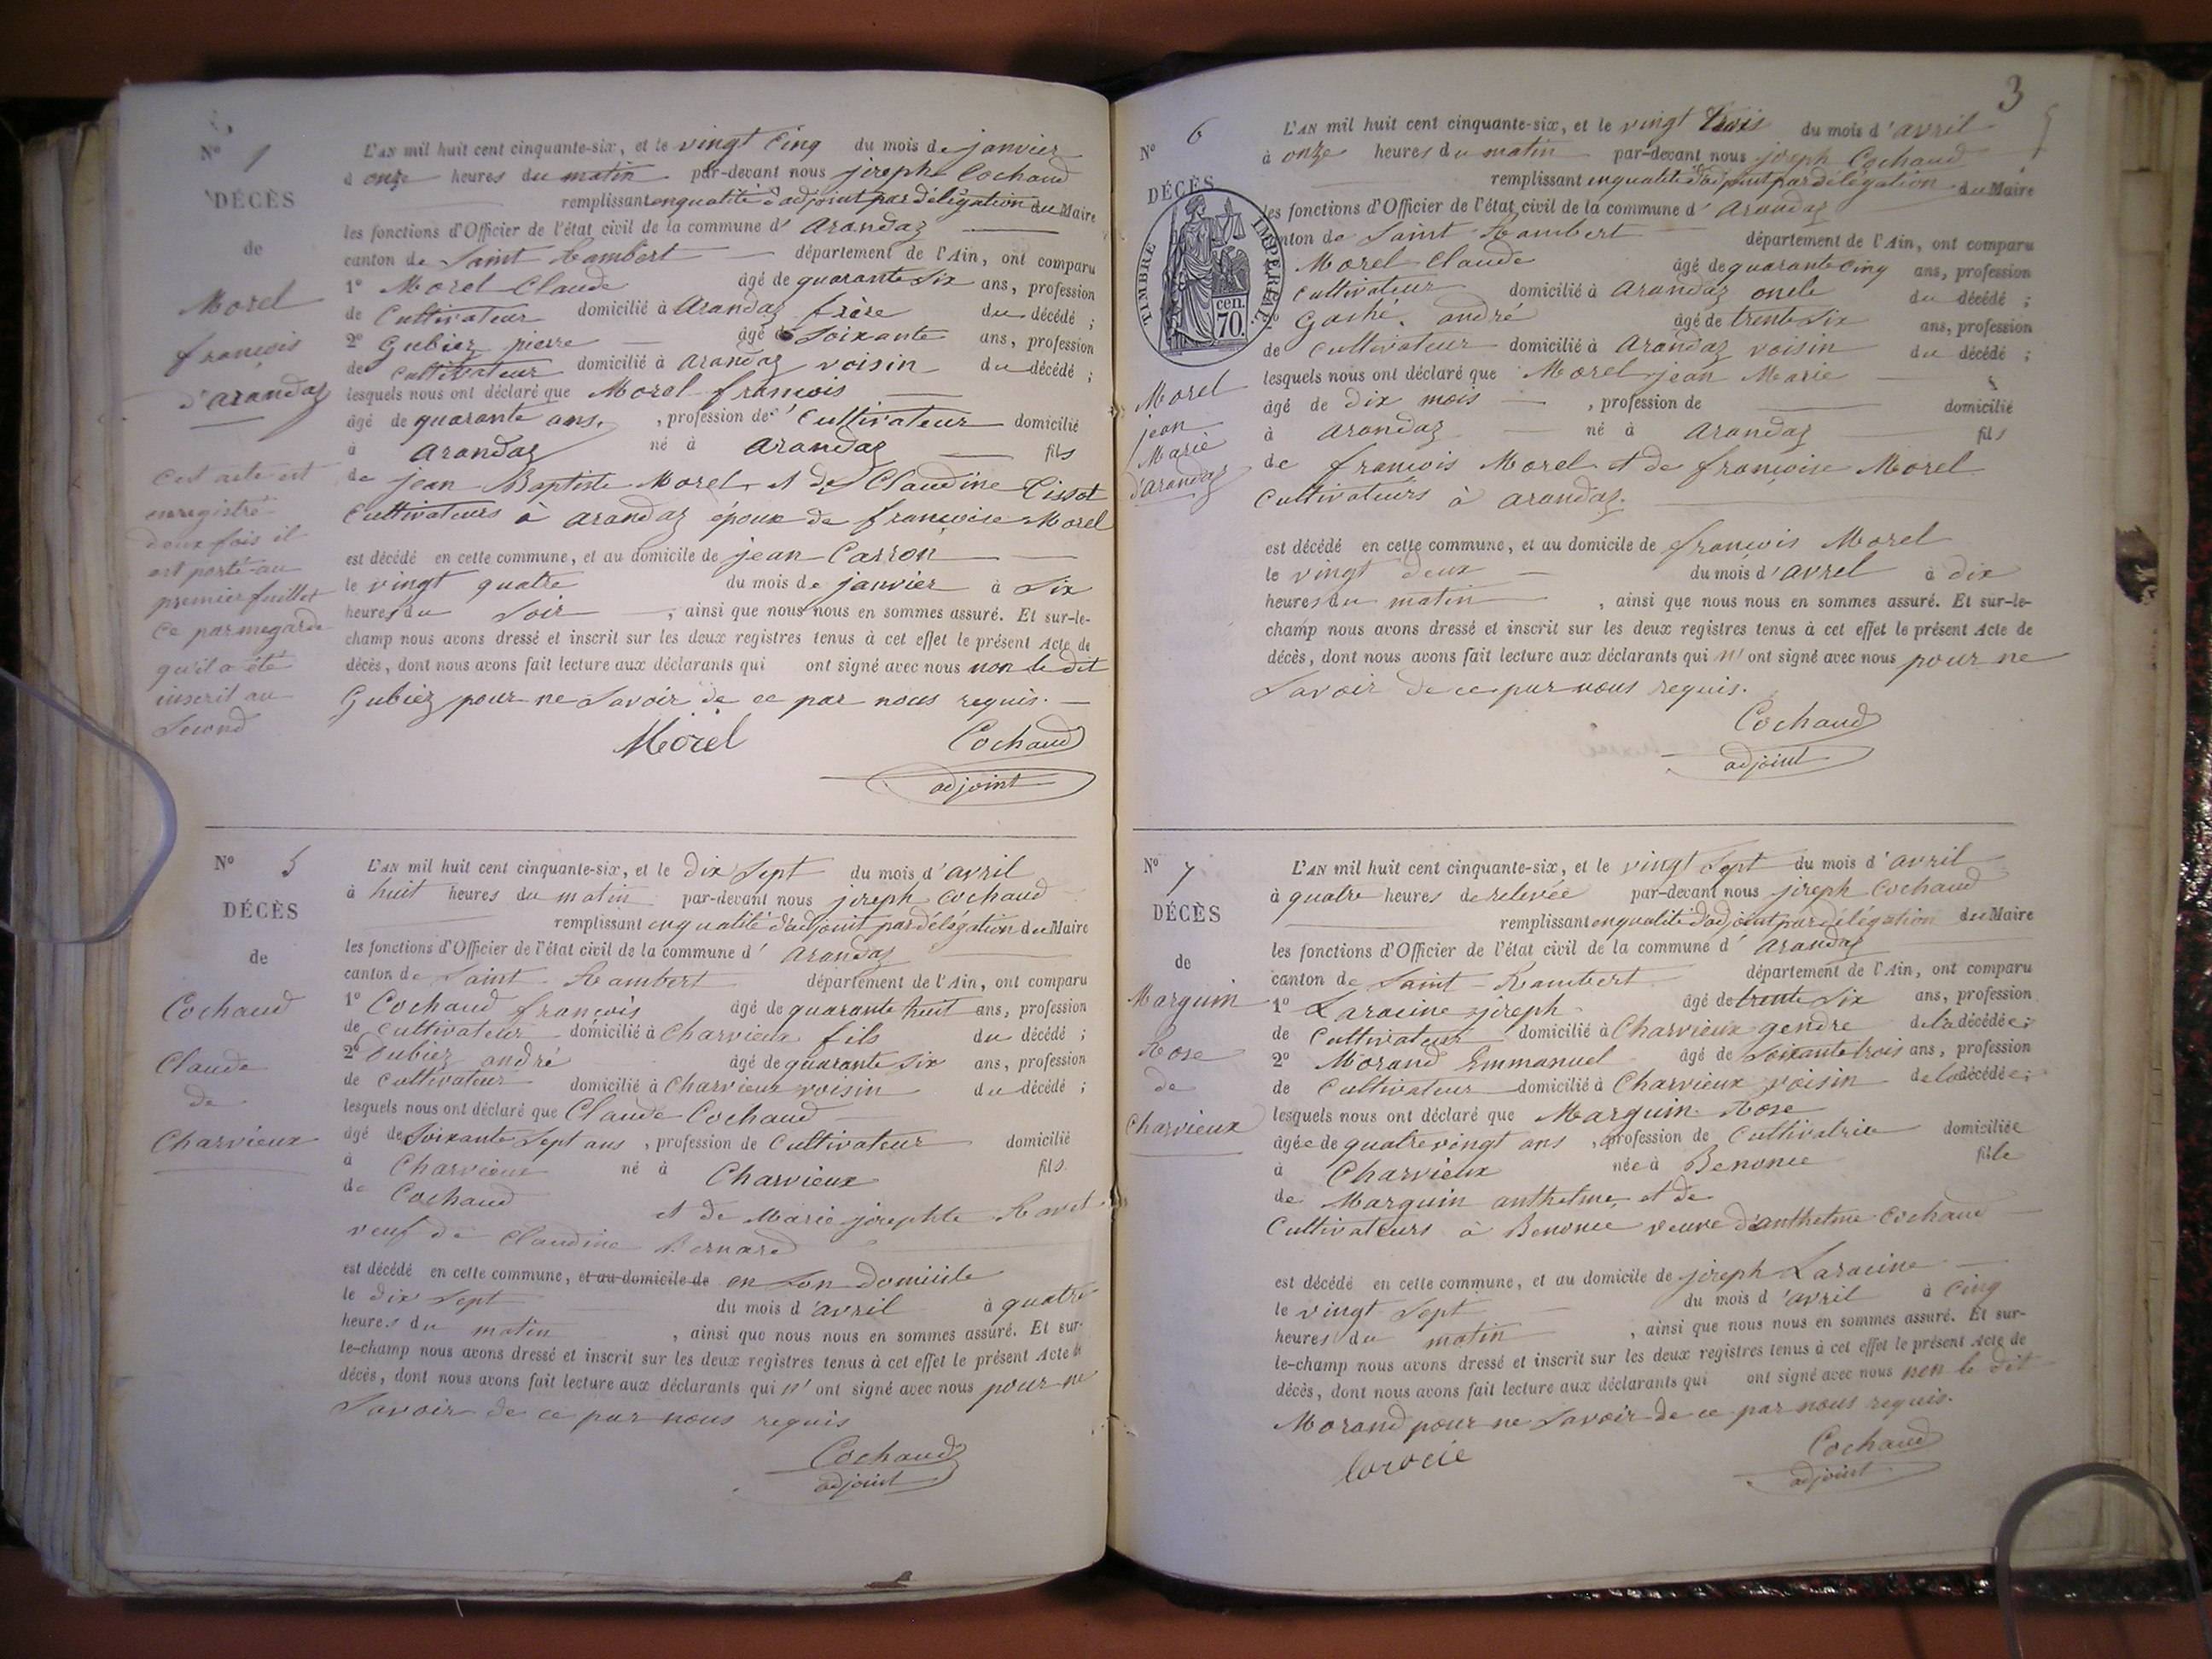 Nº 1
DÉCÈS
de
Morel
françois
d'arandaz
Cet acte est
enregistré
deux fois il
est porté au
premier feuillet
Ce par megarde
qu'il a été
inscrit au
Second
L'AN mil huit cent cinquante-six, et le vingt Cinq du mois de janvier
à onze heures du matin par-devant nous joseph Cochaud
remplissant en qualité d'adjoint par délégation du Maire
les fonctions d'Officier de l'état civil de la commune d' arandaz
canton de Saint Rambert département de l'Ain, ont comparu
1º Morel Claude âgé de quarante Six ans, profession
de Cultivateur domicilié à arandaz frère du décédé ;
2º Gubiez pierre âgé de Soixante ans, profession
de Cultivateur domicilié à arandaz voisin du décédé ;
lesquels nous ont déclaré que Morel françois
âgé de quarante ans, profession de Cultivateur domicilié
à arandaz né à arandaz fils
de jean Baptiste Morel et de Claudine Tissot
Cultivateurs à arandaz époux de françoise Morel
est décédé en cette commune, et au domicile de jean Carron
le vingt quatre du mois de janvier à Six
heures du Soir, ainsi que nous nous en sommes assuré. Et sur-le-
champ nous avons dressé et inscrit sur les deux registres tenus à cet effet le présent Acte de
décès, dont nous avons fait lecture aux déclarants qui ont signé avec nous non le dit
Gubiez pour ne Savoir de ce par nous requis.
Morel Cochaud
adjoint
Nº 5
DÉCÈS
de
Cochaud
Claude
de
Charvieux
L'AN mil huit cent cinquante-six, et le Dix Sept du mois d'avril
à huit heures du matin par-devant nous joseph Cochaud
remplissant en qualité d'adjoint par délégation du Maire
les fonctions d'Officier de l'état civil de la commune d' arandaz
canton de Saint Rambert département de l'Ain, ont comparu
1º Cochaud françois âgé de quarante huit ans, profession
de Cultivateur domicilié à Charvieux fils du décédé ;
2º Dubiez andré âgé de quarante Six ans, profession
de Cultivateur domicilié à Charvieux voisin du décédé ;
lesquels nous ont déclaré que Claude Cochaud
âgé de Soixante Sept ans, profession de Cultivateur domicilié
à Charvieux né à Charvieux fils
de Cochaud et de Marie josephte Ravet
veuf de Claudine Bernard
est décédé en cette commune, et au domicile de en Son domicile
le dix Sept du mois d'avril à quatre
heures du matin, ainsi que nous nous en sommes assuré. Et sur-
le-champ nous avons dressé et inscrit sur les deux registres tenus à cet effet le présent Acte de
décès, dont nous avons fait lecture aux déclarants qui n'ont signé avec nous pour ne
Savoir de ce par nous requis
Cochaud
adjoint
3
Nº 6
DÉCÈS
TIMBRE IMPERIAL
cen.
70.
Morel
jean
Marie
d'arandaz
L'AN mil huit cent cinquante-six, et le vingt trois du mois d'avril
à onze heures du matin par-devant nous joseph Cochaud
remplissant en qualité d'adjoint par délégation du Maire
les fonctions d'Officier de l'état civil de la commune d' arandaz
canton de Saint Rambert département de l'Ain, ont comparu
Morel Claude âgé de quarante Cinq ans, profession
Cultivateur domicilié à arandaz oncle du décédé ;
Gaché andré âgé de trente Six ans, profession
de Cultivateur domicilié à arandaz voisin du décédé ;
lesquels nous ont déclaré que Morel jean Marie
âgé de dix mois, profession de domicilié
à arandaz né à arandaz fils
de françois Morel et de françoise Morel
Cultivateurs à arandaz.
est décédé en cette commune, et au domicile de françois Morel
le vingt deux du mois d'avrel à dix
heures du matin, ainsi que nous nous en sommes assuré. Et sur-le-
champ nous avons dressé et inscrit sur les deux registres tenus à cet effet le présent Acte de
décès, dont nous avons fait lecture aux déclarants qui n'ont signé avec nous pour ne
Savoir de ce par nous requis.
Cochaud
adjoint
Nº 7
DÉCÈS
de
Marguin
Rose
de
Charvieux
L'AN mil huit cent cinquante-six, et le vingt Sept du mois d'avril
à quatre heures de relevée par-devant nous joseph Cochaud
remplissant en qualité d'adjoint par délégation du Maire
les fonctions d'Officier de l'état civil de la commune d' arandaz
canton de Saint Rambert département de l'Ain, ont comparu
1º Laracine joseph âgé de trente Six ans, profession
de Cultivateur domicilié à Charvieux gendre de la décédée ;
2º Morand Emmanuel âgé de Soixante trois ans, profession
de Cultivateur domicilié à Charvieux voisin de la décédée ;
lesquels nous ont déclaré que Marguin Rose
âgée de quatre vingt ans, profession de Cultivatrice domiciliée
à Charvieux née à Benonce fille
de Marguin anthelme et de
Cultivateurs à Benonce veuve d'anthelme Cochaud
est décédé en cette commune, et au domicile de joseph Laracine
le vingt Sept du mois d'avril à Cinq
heures du matin, ainsi que nous nous en sommes assuré. Et sur-
le-champ nous avons dressé et inscrit sur les deux registres tenus à cet effet le présent Acte de
décès, dont nous avons fait lecture aux déclarants qui ont signé avec nous non le dit
Morand pour ne Savoir de ce par nous requis.
Cochaud
adjoint